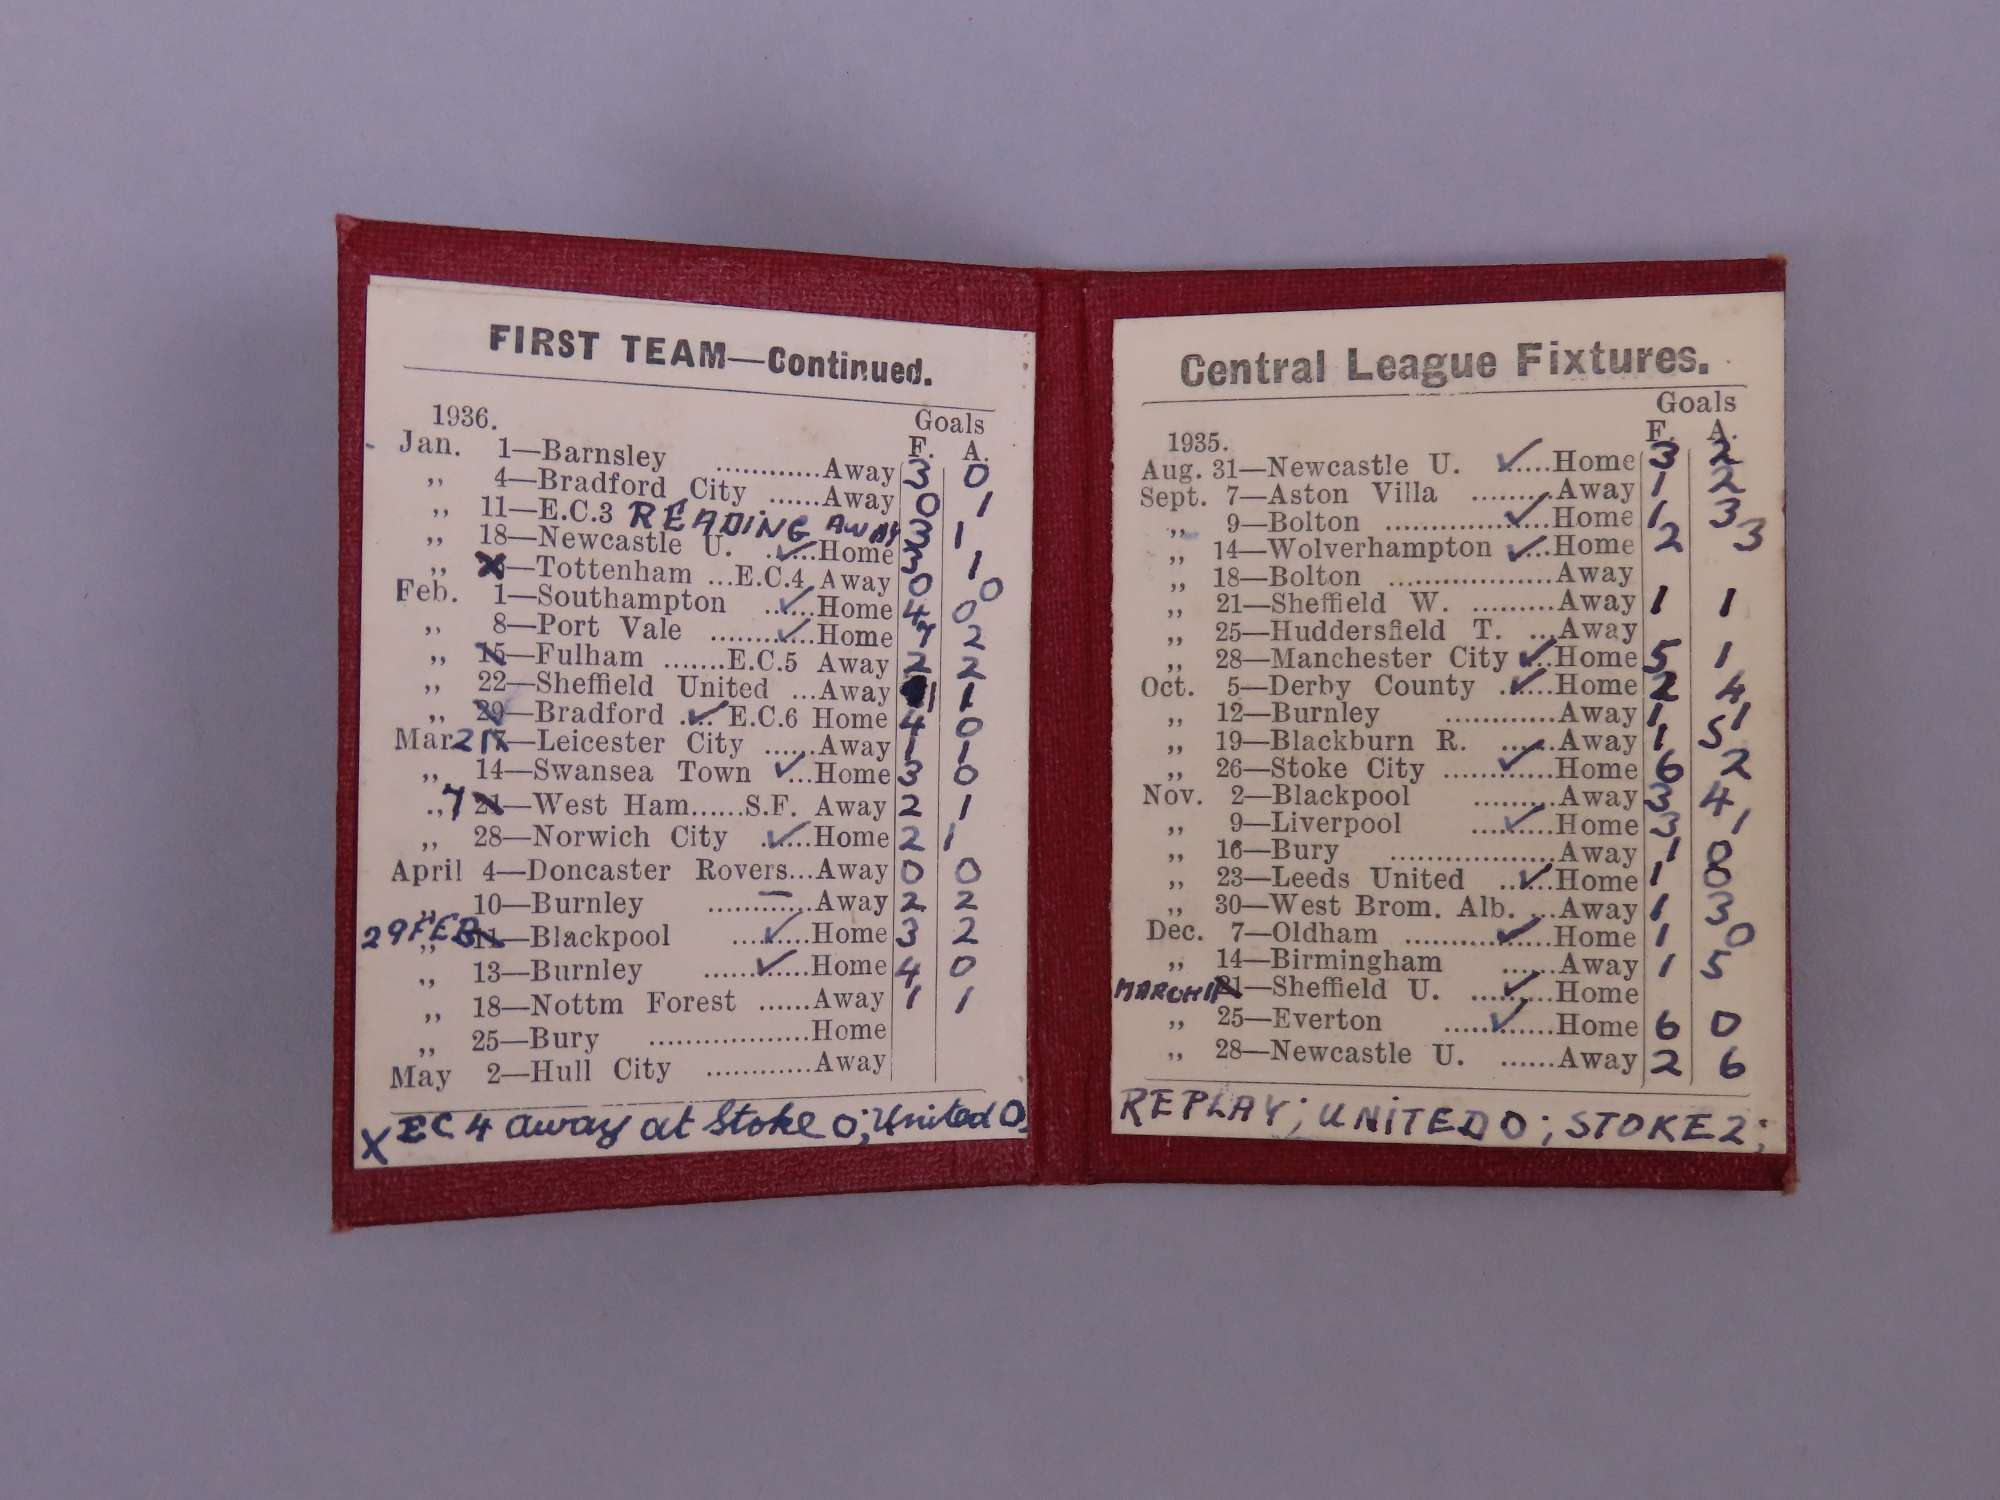 FIRST TEAM—Continued.
1936.
Goals
F. A.
Jan. 1—Barnsley ............Away 3 0
„ 4—Bradford City ......Away 0 1
„ 11—E.C.3 READING AWAY 3 1
„ 18—Newcastle U. ..✓...Home 3 1
„ —Tottenham ...E.C.4 Away 0 0
Feb. 1—Southampton ..✓...Home 4 0
„ 8—Port Vale ........✓...Home 7 2
„ 15—Fulham .......E.C.5 Away 2 2
„ 22—Sheffield United ...Away 1 1
„ 29—Bradford ..✓.. E.C.6 Home 4 0
Mar 21 —Leicester City ......Away 1 1
„ 14—Swansea Town ✓...Home 3 0
„ 7 21—West Ham......S.F. Away 2 1
„ 28—Norwich City .✓...Home 2 1
April 4—Doncaster Rovers...Away 0 0
„ 10—Burnley ............Away 2 2
29 FEB „ 11—Blackpool ....✓....Home 3 2
„ 13—Burnley ......✓....Home 4 0
„ 18—Nottm Forest ......Away 1 1
„ 25—Bury ..................Home
May 2—Hull City ............Away
X EC 4 away at Stoke 0; United 0;
Central League Fixtures.
Goals
1935. F. A.
Aug. 31—Newcastle U. ✓....Home 3 2
Sept. 7—Aston Villa .........Away 1 2
„ 9—Bolton .............✓...Home 1 3
„ 14—Wolverhampton ✓...Home 2 3
„ 18—Bolton ..................Away
„ 21—Sheffield W. .........Away 1 1
„ 25—Huddersfield T. ...Away
„ 28—Manchester City ✓...Home 5 1
Oct. 5—Derby County .✓....Home 2 4
„ 12—Burnley ............Away 1 1
„ 19—Blackburn R. ......Away 1 5
„ 26—Stoke City ......✓.....Home 6 2
Nov. 2—Blackpool .........Away 3 4
„ 9—Liverpool ....✓....Home 3 1
„ 16—Bury ..................Away 1 0
„ 23—Leeds United ..✓...Home 1 0
„ 30—West Brom. Alb. ...Away 1 3
Dec. 7—Oldham .........✓....Home 1 0
„ 14—Birmingham ......Away 1 5
MARCH 21—Sheffield U. ....✓....Home
„ 25—Everton .....✓......Home 6 0
„ 28—Newcastle U. ......Away 2 6
REPLAY; UNITED 0; STOKE 2;